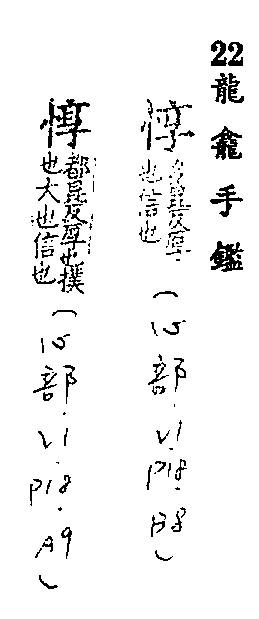 22龍龕手鑑
惇 多昆反厚
也信也
(心部.V1.P18.B8)
惇 都昆反厚也撲
也大也信也
(心部.V1.P18.A9)